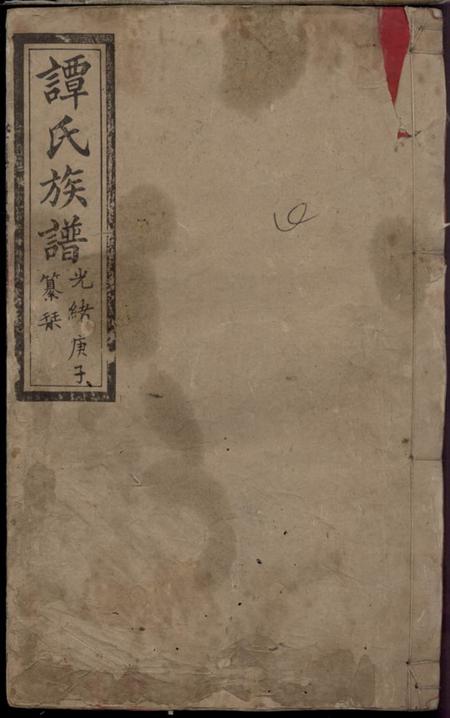 譚氏族譜
光緒庚子
纂栞